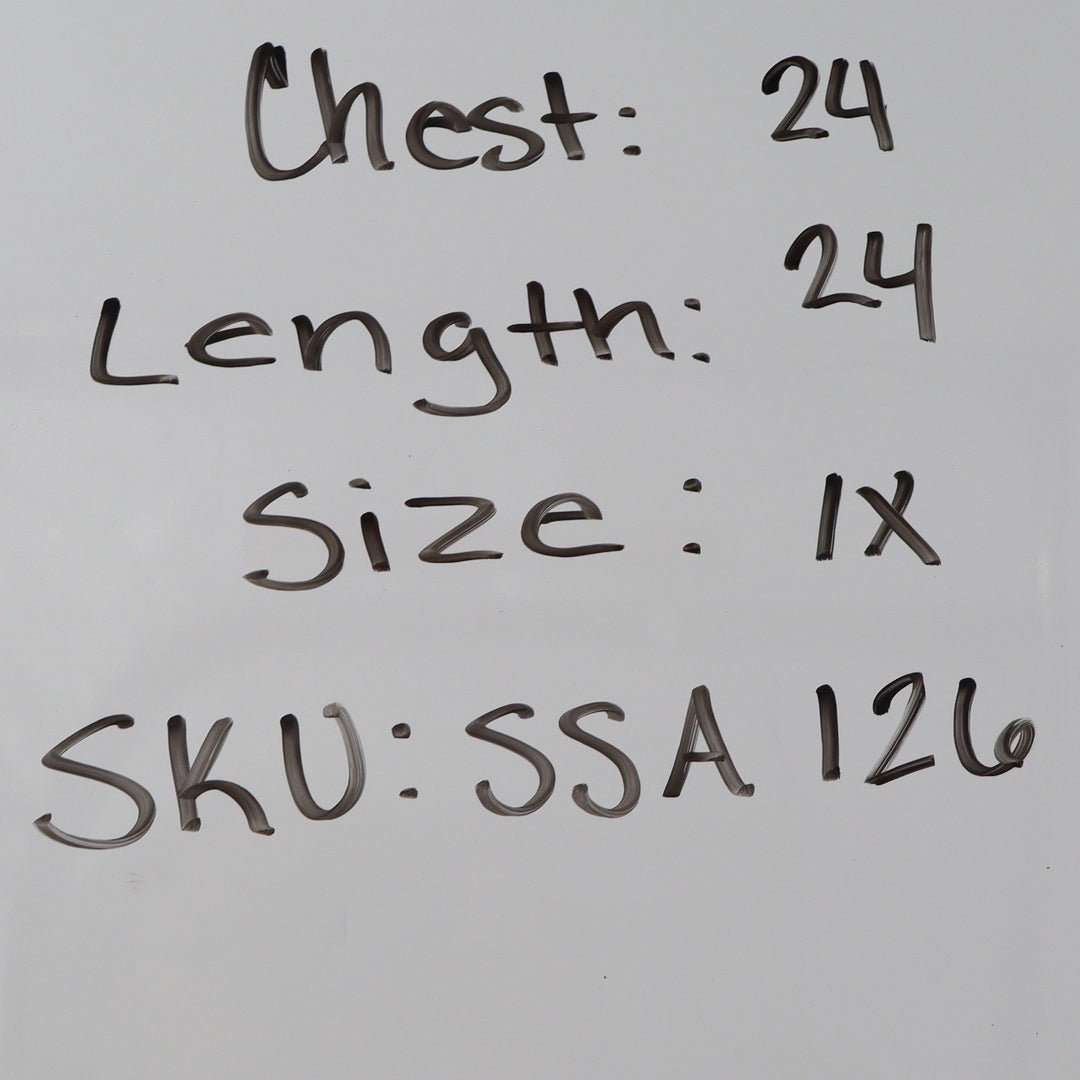 Chest: 24
Length: 24
Size: 1X
SKU: SSA 126